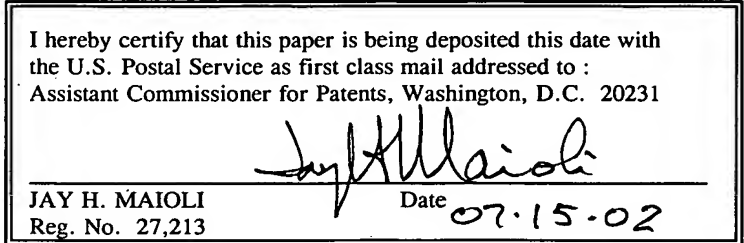 I hereby certify that this paper is being deposited this date with
the U.S. Postal Service as first class mail addressed to :
Assistant Commissioner for Patents, Washington, D.C. 20231
Jay H Maioli
JAY H. MAIOLI Date 07.15.02
Reg. No. 27,213